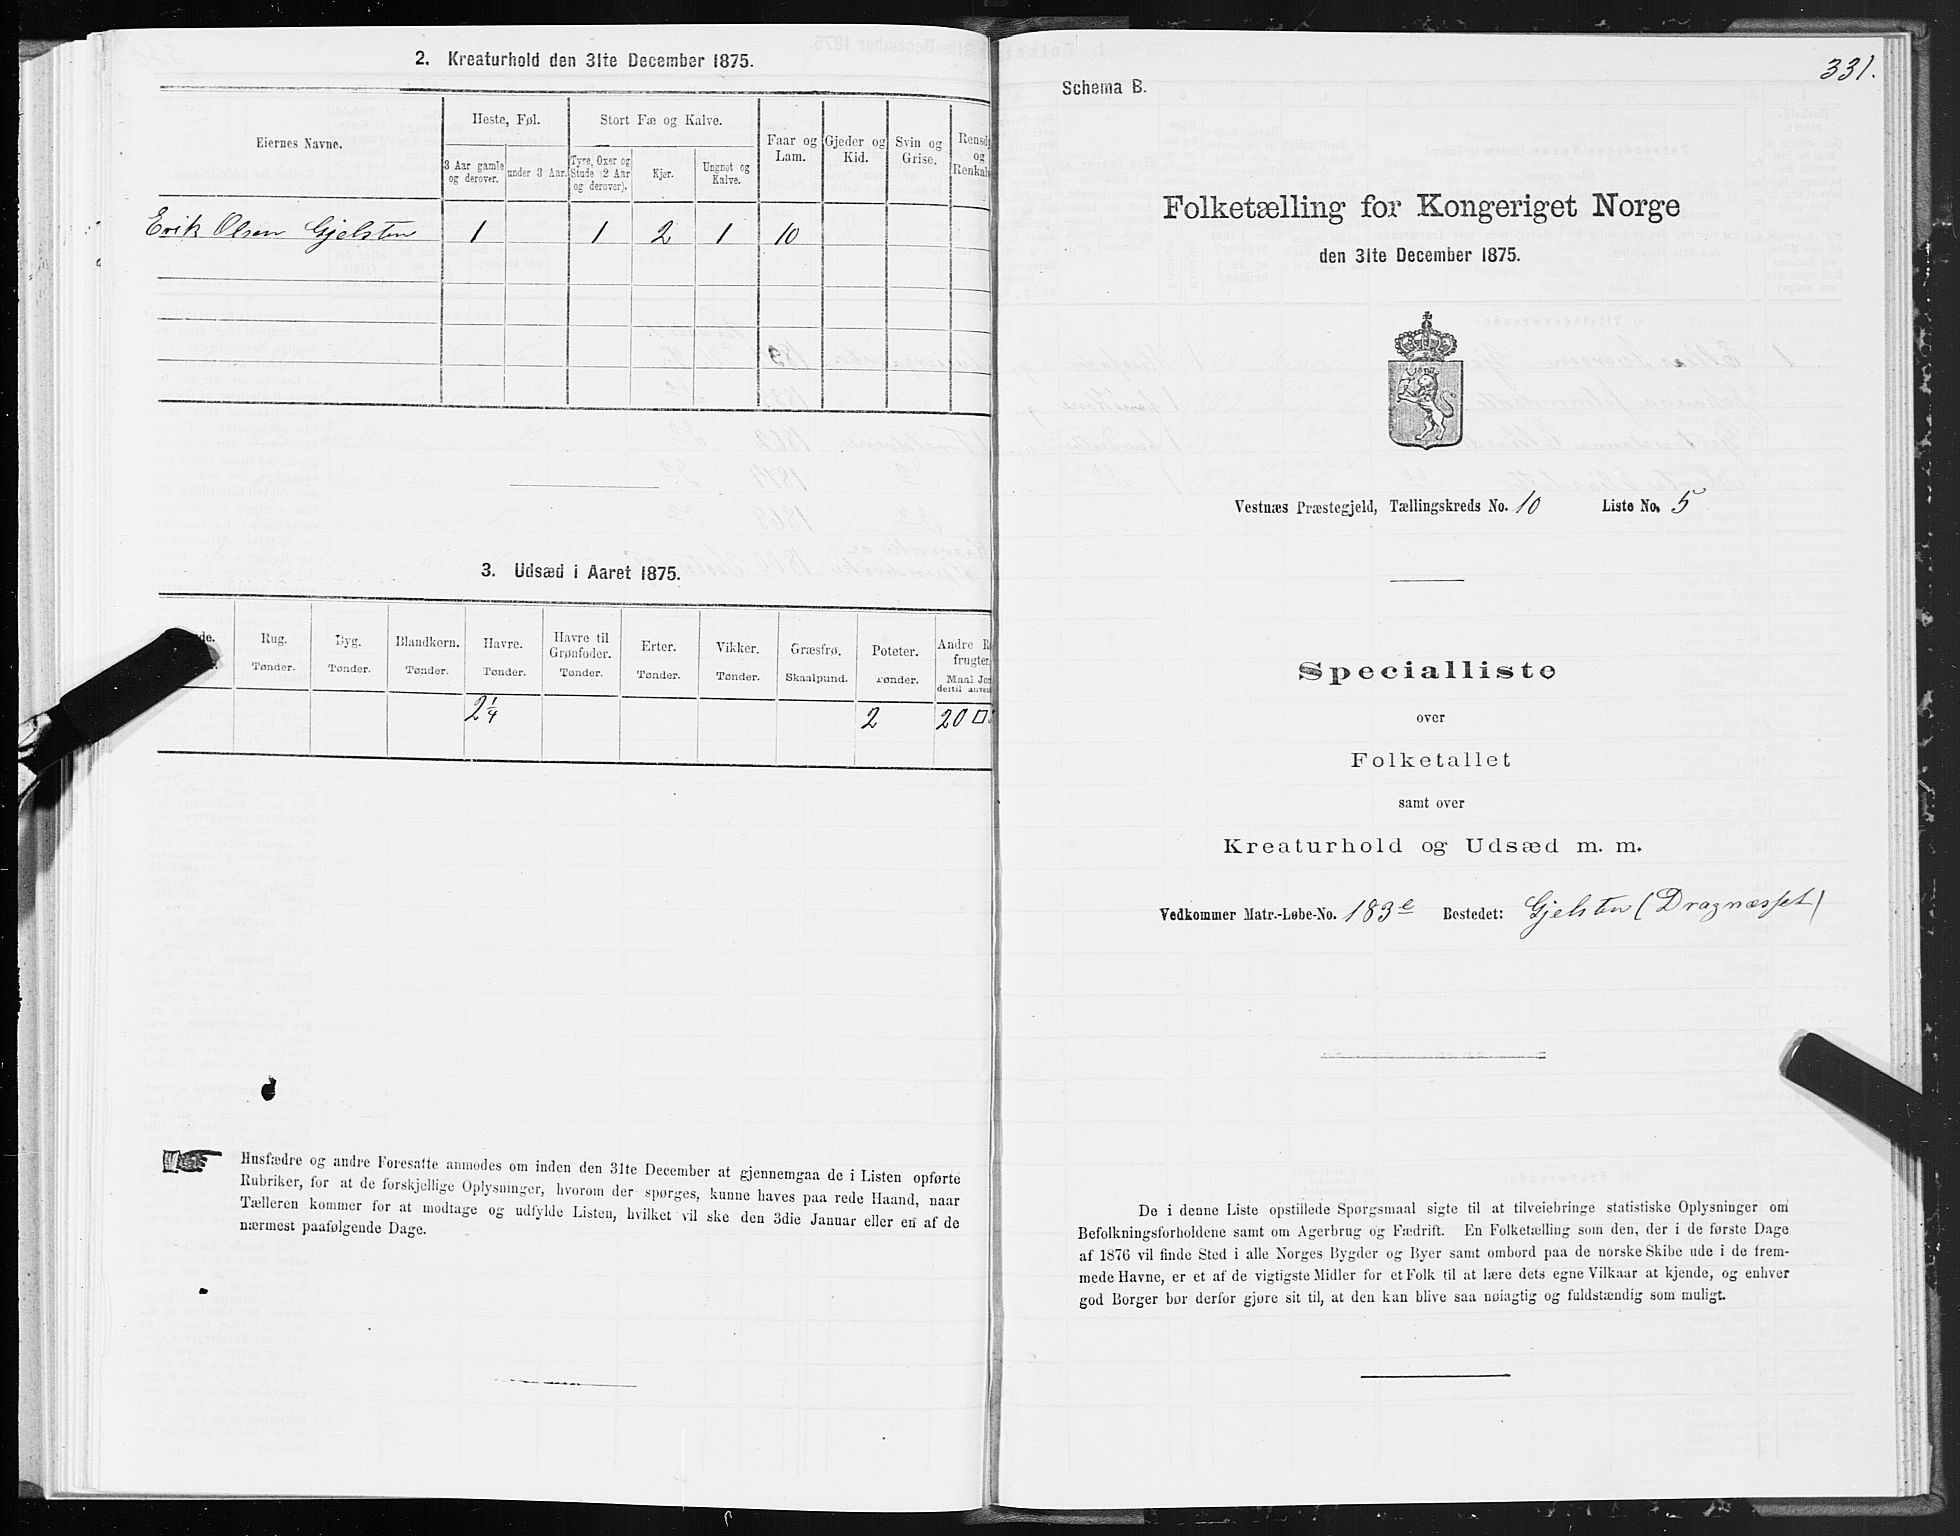 2. Kreaturhold den 31te December 1875.
Eiernes Navne.
Heste, Føl.
Stort Fæ og Kalve.
Faar og Lam.
Gjeder og Kid.
Svin og Grise.
og
3 Aar gamle og derover.
under 3 Aar.
Tyre, Oxer og Stude (2 Aar og derover).
Kjør.
Ungnøt og Kalve.
Erik Olsen Gjelsten 1 1 2 1 10
3. Udsæd i Aaret 1875.
Rug. Tønder.
Byg. Tønder.
Blandkorn. Tønder.
Havre. Tønder.
Havre til Grønfoder. Tønder.
Erter. Tønder.
Vikker. Tønder.
Græsfrø. Skaalpund.
Poteter. Tønder.
Andre
Maal
dertil
2 1/4 2 20 □
Husfædre og andre Foresatte anmodes om inden den 31te December at gjennemgaa de i Listen opførte
Rubriker, for at de forskjellige Oplysninger, hvorom der spørges, kunne haves paa rede Haand, naar
Tælleren kommer for at modtage og udfylde Listen, hvilket vil ske den 3die Januar eller en af de
nærmest paafølgende Dage.
331.
Schema B.
Folketælling for Kongeriget Norge
den 31te December 1875.
Vestnæs Præstegjeld, Tællingskreds No. 10 Liste No. 5
Specialliste
over
Folketallet
samt over
Kreaturhold og Udsæd m. m.
Vedkommer Matr.-Løbe-No. 183 e Bostedet: Gjelsten (Dragnæsset)
De i denne Liste opstillede Spørgsmaal sigte til at tilveiebringe statistiske Oplysninger om
Befolkningsforholdene samt om Agerbrug og Fædrift. En Folketælling som den, der i de første Dage
af 1876 vil finde Sted i alle Norges Bygder og Byer samt ombord paa de norske Skibe ude i de frem-
mede Havne, er et af de vigtigste Midler for et Folk til at lære dets egne Vilkaar at kjende, og enhver
god Borger bør derfor gjøre sit til, at den kan blive saa nøiagtig og fuldstændig som muligt.